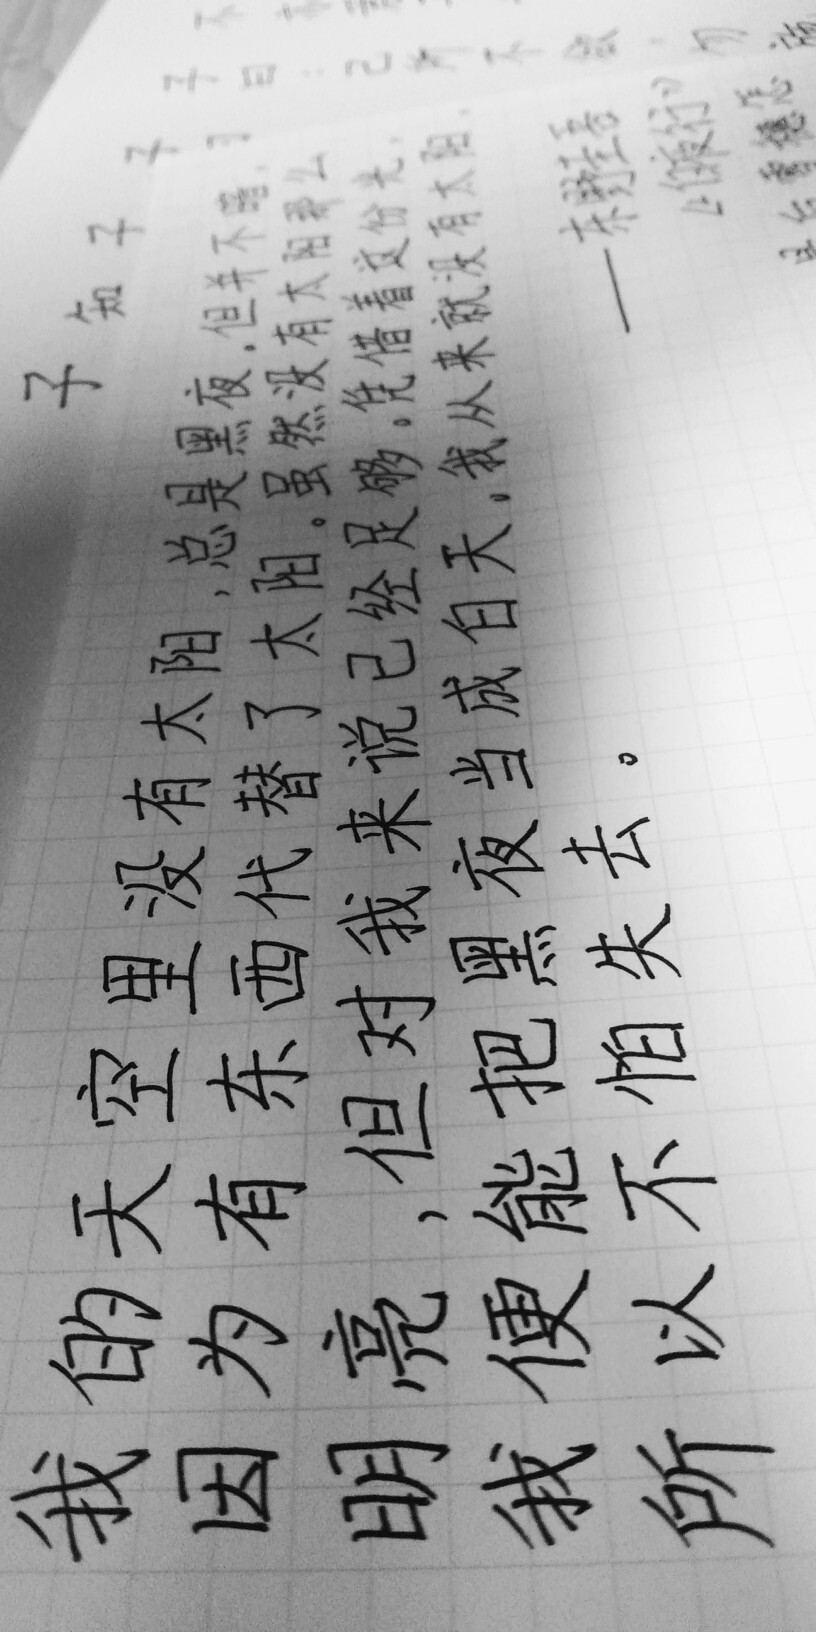 子知子子
子曰：己所不欲，勿施
我的天空里没有太阳，总是黑夜，但并不暗，
因为有东西代替了太阳。虽然没有太阳那么
明亮，但对我来说已经足够。凭借着这份光，
我便能把黑夜当成白天。我从来就没有太阳，
所以不怕失去。
——东野圭吾
《白夜行》